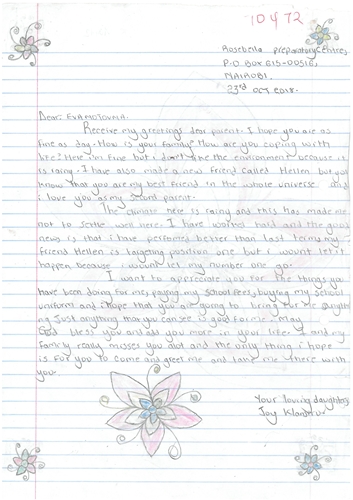 10472
Rosebella preparatory Centre,
P.O. BOX 615-00516,
NAIROBI.
23rd OCT 2018.
Dear:
Receive my greetings dear parent. I hope you are as
fine as day. How is your family? How are you coping with
life? Here i'm fine but i don't like the environment because it
is rainy. I have also made a new friend called Hellen but you
know that you are my best friend in the whole universe and
i love you as my second parent.
The climate here is rainy and this has made me
not to settle well here. I have worked hard and the good
news is that i have performed better than last term. my
friend Hellen is targeting position one but i wount let it
happen because i wount let my number one go.
I want to appreciate you for the things you
have been doing for me; paying my school fees, buying my school
uniform and i hope that you are going to bring for me
Just anything that you can see is good for me. May
God bless you and add you more in your life. I and my
family really misses you alot and the only thing i hope
is for you to come and greet me and take me there with
you.
Your loving daughter,
Joy